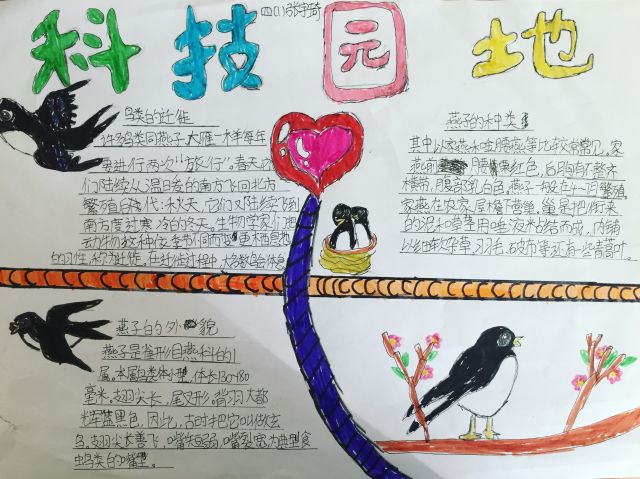 科技园地
四(1)张宇琦
鸟类的迁徙
许多鸟类同燕子大雁一样每年
要进行两次“旅行”。春天它
们陆续从温暖的南方飞回北方
繁殖后代；秋天，它们又陆续飞到
南方度过寒冷的冬天。生物学家们把
动物这种位季节何而更栖息地
的习性，称为迁徙。在迁徙过程中，大多数会体
燕子的种类
其中以家燕和金腰燕等比较常见，家
燕前腰栗红色，后胸有不整齐
横带，腹部乳白色。燕子一般在4~7月繁殖
家燕在农家屋檐下营巢，巢是把衔来
的泥和草茎用唾液粘结而成，内铺
以细软杂草，羽毛，破布等还有一些青蒿叶。
燕子的外貌
燕子是雀形目燕科的1
属。本属鸟类体小型，体长130~180
毫米。翅尖长，尾叉形。背羽大都
辉蓝黑色，因此，古时把它叫做玄
鸟。翅尖长善飞，嘴短弱，嘴裂宽，为典型食
虫鸟类的嘴型。